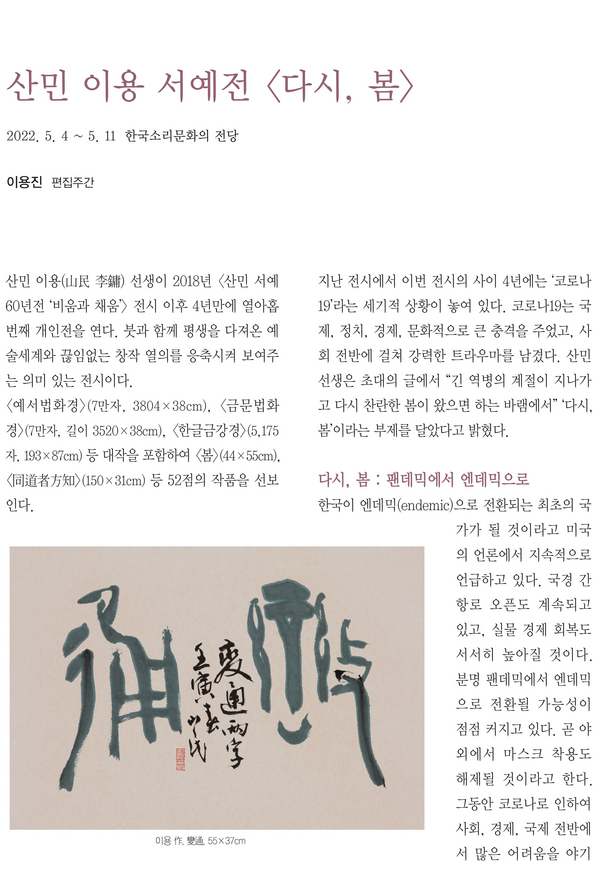 산민 이용 서예전 〈다시, 봄〉
2022. 5. 4 ~ 5. 11 한국소리문화의 전당
이용진 편집주간
산민 이용(山民 李鏞) 선생이 2018년 〈산민 서예
60년전 ‘비움과 채움’〉 전시 이후 4년만에 열아홉
번째 개인전을 연다. 붓과 함께 평생을 다져온 예
술세계와 끊임없는 창작 열의를 응축시켜 보여주
는 의미 있는 전시이다.
〈예서법화경〉(7만자, 3804×38cm), 〈금문법화
경〉(7만자, 길이 3520×38cm), 〈한글금강경〉(5,175
자, 193×87cm) 등 대작을 포함하여 〈봄〉(44×55cm),
〈同道者方知〉(150×31cm) 등 52점의 작품을 선보
인다.
지난 전시에서 이번 전시의 사이 4년에는 ‘코로나
19’라는 세기적 상황이 놓여 있다. 코로나19는 국
제, 정치, 경제, 문화적으로 큰 충격을 주었고, 사
회 전반에 걸쳐 강력한 트라우마를 남겼다. 산민
선생은 초대의 글에서 “긴 역병의 계절이 지나가
고 다시 찬란한 봄이 왔으면 하는 바램에서” ‘다시,
봄’이라는 부제를 달았다고 밝혔다.
다시, 봄 : 팬데믹에서 엔데믹으로
한국이 엔데믹(endemic)으로 전환되는 최초의 국
가가 될 것이라고 미국
의 언론에서 지속적으로
언급하고 있다. 국경 간
항로 오픈도 계속되고
있고, 실물 경제 회복도
서서히 높아질 것이다.
분명 팬데믹에서 엔데믹
으로 전환될 가능성이
점점 커지고 있다. 곧 야
외에서 마스크 착용도
해제될 것이라고 한다.
그동안 코로나로 인하여
사회, 경제, 국제 전반에
서 많은 어려움을 야기
變通
變通兩字
壬寅春山民
이용 作, 變通, 55×37cm